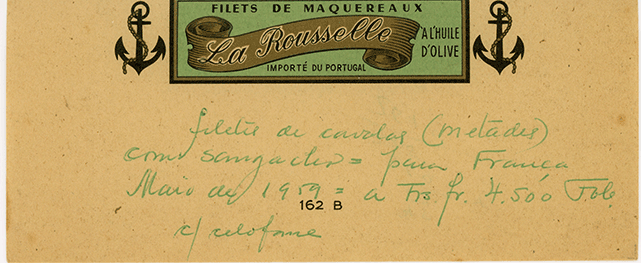 FILETS DE MAQUEREAUX
La Rousselle
A L'HUILE
D'OLIVE
IMPORTÉ DU PORTUGAL
filetes de cavalas (metades)
com sangacho = para França
Maio de 1959 = a Frs. fr. 4.500
162 B
c/ celofane